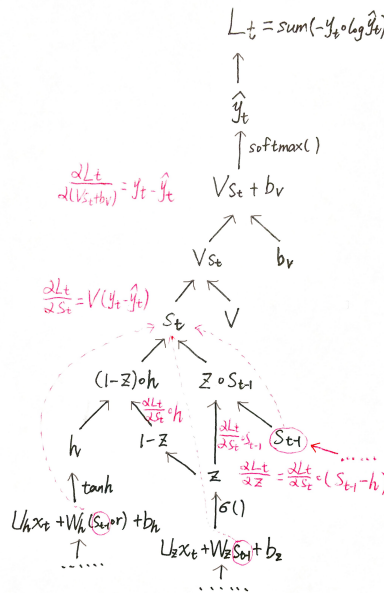 L_t = sum(-y_t∘log ŷ_t)
ŷ_t
softmax()
∂L_t/∂(Vs_t+b_v) = y_t - ŷ_t
Vs_t + b_v
Vs_t
b_v
∂L_t/∂s_t = V(y_t - ŷ_t)
s_t
V
(1-z)∘h
z∘s_{t-1}
∂L_t/∂s_t∘h
∂L_t/∂s_t∘s_{t-1}
s_{t-1}
......
h
1-z
z
∂L_t/∂z = ∂L_t/∂s_t∘(s_{t-1}-h)
tanh
σ()
U_h x_t + W_h(s_{t-1}∘r) + b_h
U_z x_t + W_z s_{t-1} + b_z
......
......